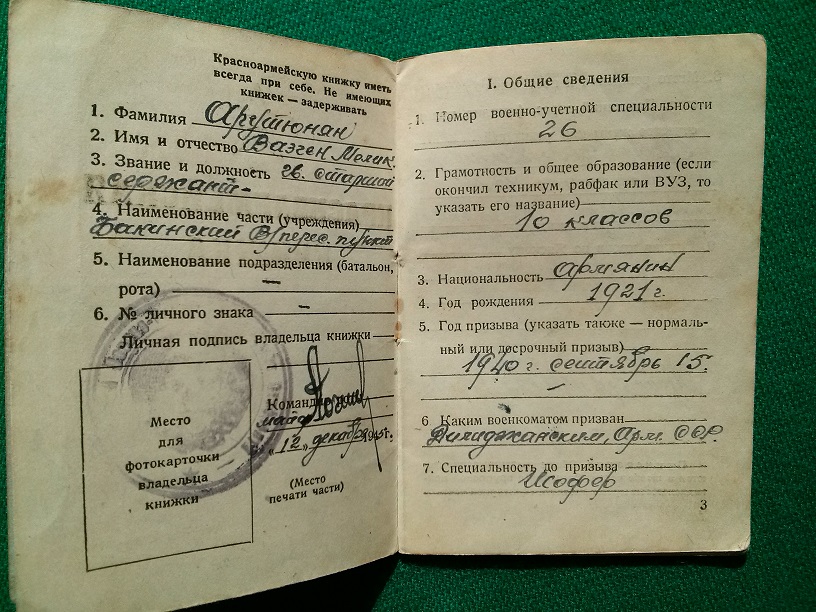 Красноармейскую книжку иметь
всегда при себе. Не имеющих
книжек — задерживать
1. Фамилия Арутюнян
2. Имя и отчество Вазген Мелик.
3. Звание и должность гв. старший
сержант -
4. Наименование части (учреждения)
Бакинский В/перес. пункт
5. Наименование подразделения (батальон,
рота) —
6. № личного знака —
Личная подпись владельца книжки
Место
для
фотокарточки
владельца
книжки
Командир
майор
„12„ декабря 1945 г.
(Место
печати части)
I. Общие сведения
1. Номер военно-учетной специальности
26
2. Грамотность и общее образование (если
окончил техникум, рабфак или ВУЗ, то
указать его название)
10 классов
3. Национальность армянин
4. Год рождения 1921 г.
5. Год призыва (указать также — нормаль-
ный или досрочный призыв)
1940 г. сентябрь 15.
—
6 Каким военкоматом призван
Дилиджанским, Арм. ССР.
7. Специальность до призыва
Шофер
3